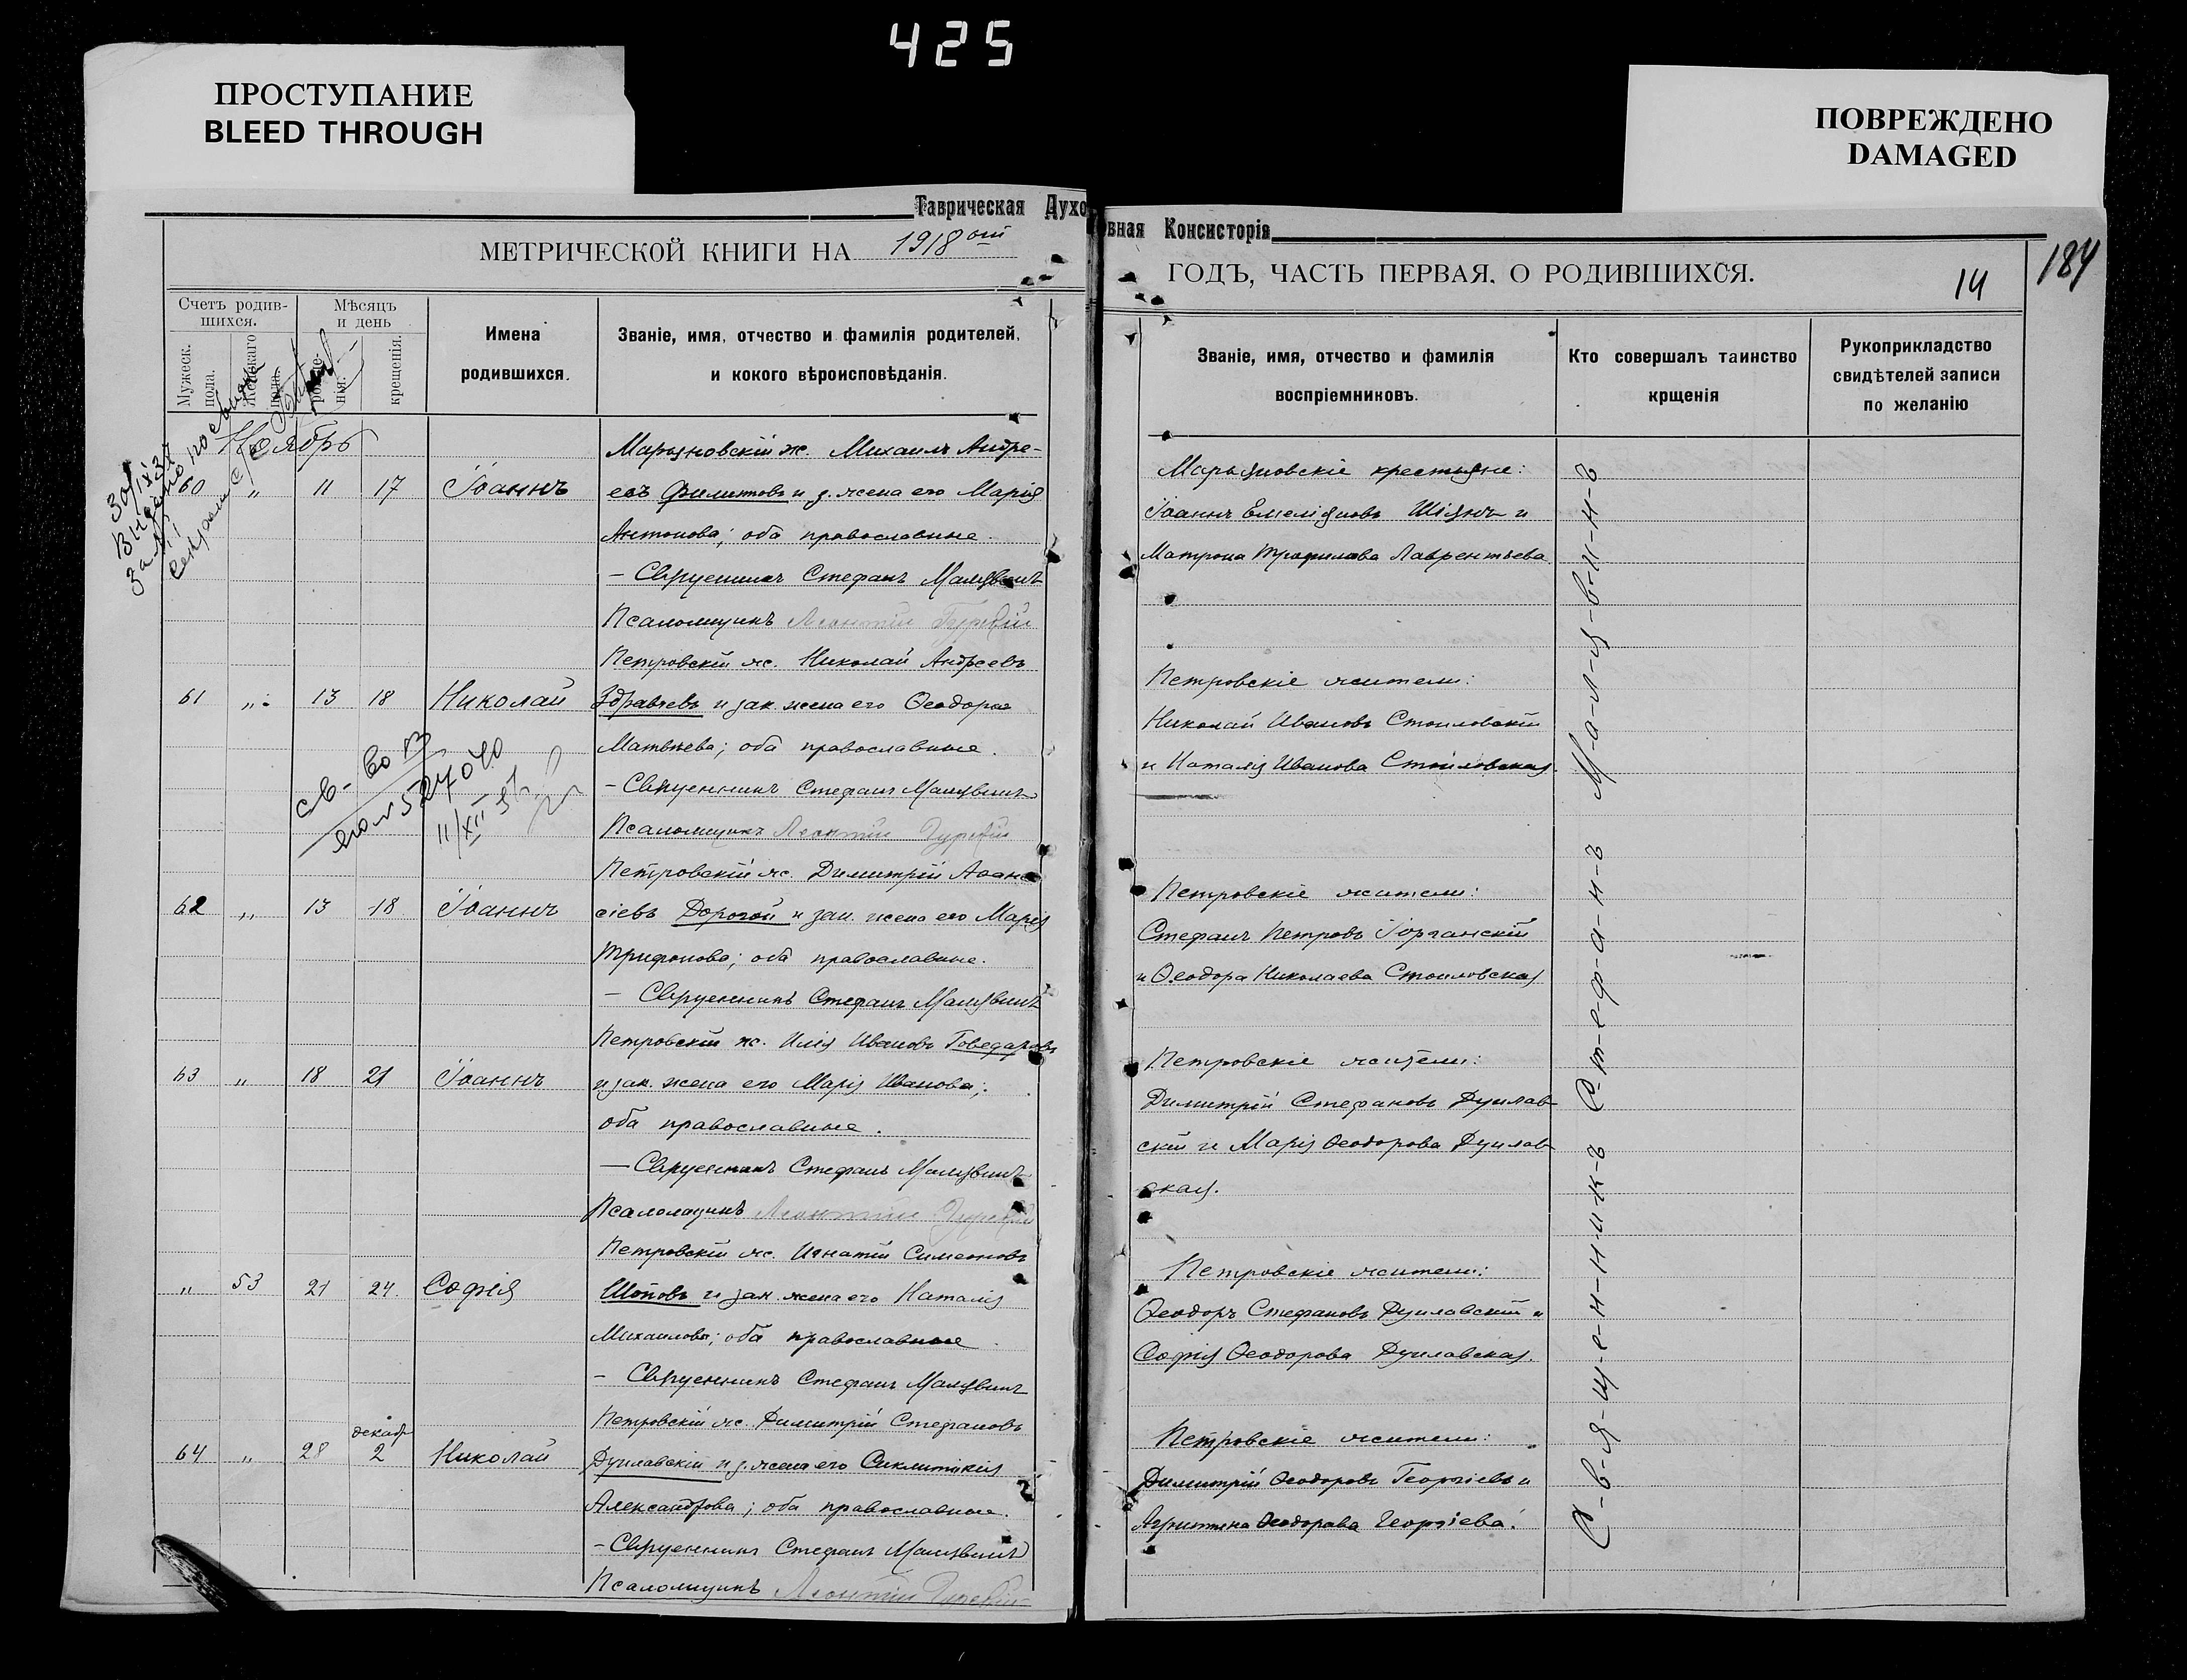 425
ПРОСТУПАНИЕ
BLEED THROUGH
ПОВРЕЖДЕНО
DAMAGED
Таврическая Духо
вная Консисторія
МЕТРИЧЕСКОЙ КНИГИ НА 1918 ый
ГОДЪ, ЧАСТЬ ПЕРВАЯ, О РОДИВШИХСЯ.
14
184
Счетъ родив-
шихся.
Мѣсяцъ
и день
Мужеск.
пола.
Женскаго
пола.
рожде-
нія.
крещенія.
Имена
родившихся.
Званіе, имя, отчество и фамилія родителей,
и кокого вѣроисповѣданія.
Званіе, имя, отчество и фамилія
воспріемниковъ.
Кто совершалъ таинство
крщенія
Рукоприкладство
свидѣтелей записи
по желанію
Ноябрь
60 " 11 17 Іоаннъ
Михаилъ Андре-
евъ Филиповъ и з. жена его Марія
Антонова; оба православные.
– Священникъ Стефанъ Малявинъ
Псаломщикъ Леонтій
Марьяновскіе крестьяне:
Іоаннъ Емеліяновъ и
Матрона Лаврентьева.
61 " 13 18 Николай
Петровскій ж. Николай Андреевъ
Здравчевъ и зак. жена его Ѳеодора
Матвѣева; оба православные.
– Священникъ Стефанъ Малявинъ
Псаломщикъ Леонтій
Петровскіе жители:
Николай Ивановъ Стоиловскій
и Наталія Иванова Стоиловская.
св-во
11/XII
62 " 13 18 Іоаннъ
Петровскій ж. Димитрій Аѳана
сіевъ Дорогой и зак. жена его Марія
Трифонова; оба православные.
– Священникъ Стефанъ Малявинъ
Петровскіе жители:
Стефанъ Петровъ
и Ѳеодора Николаева Стоиловская
63 " 18 21 Іоаннъ
Петровскій ж. Илія Ивановъ Говедаровъ
и зак. жена его Марія Иванова;
оба православные.
– Священникъ Стефанъ Малявинъ
Псаломщикъ Леонтій
Петровскіе жители:
Димитрій Стефановъ Дуилов
скій и Марія Ѳеодорова Дуилов
ская.
" 53 21 24 Софія
Петровскій ж. Игнатій Симеоновъ
Шоповъ и зак. жена его Наталія
Михаилова; оба православные
– Священникъ Стефанъ Малявинъ
Петровскіе жители:
Ѳеодоръ Стефановъ Дуиловскій и
Софія Ѳеодорова Дуиловская.
декабр
64 " 28 2 Николай
Петровскій ж. Димитрій Стефановъ
Дуиловскій и з. жена его
Александрова; оба православные.
– Священникъ Стефанъ Малявинъ
Псаломщикъ Леонтій
Петровскіе жители:
Димитрій Ѳеодоровъ Георгіевъ и
Ѳеодорова Георгіева.
С-в-я-щ-е-н-н-и-к-ъ С-т-е-ф-а-н-ъ М-а-л-я-в-и-н-ъ